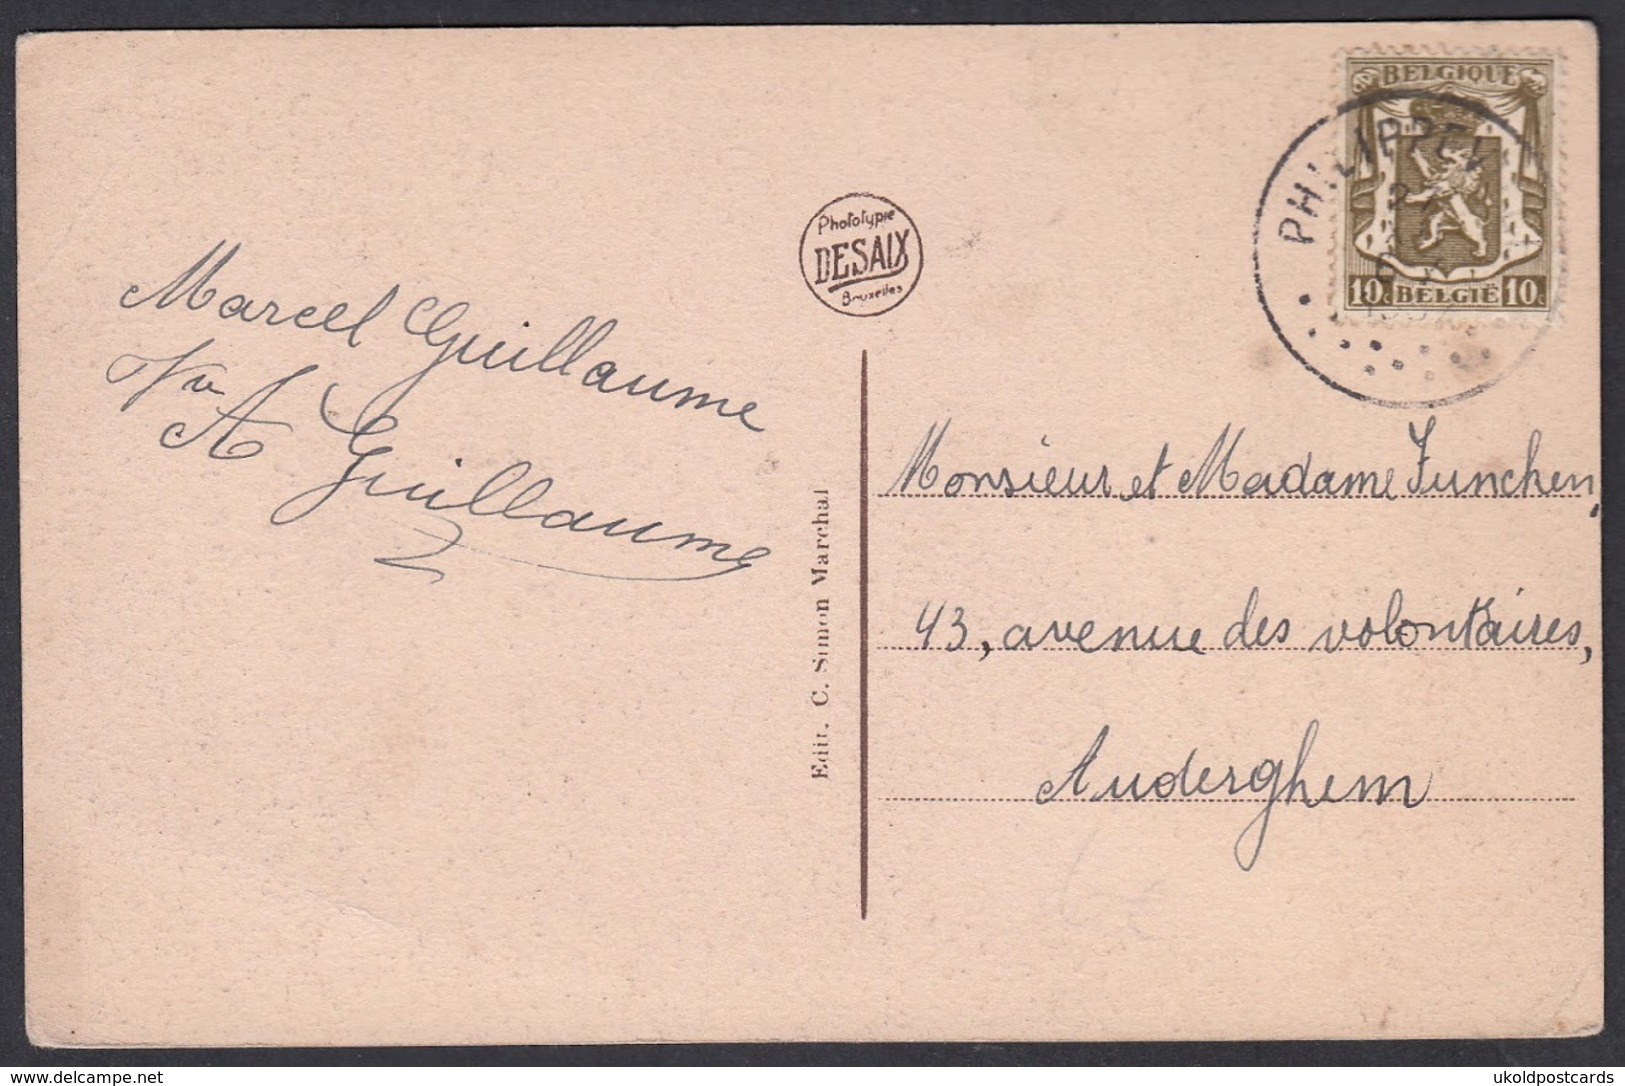 BELGIQUE
10c BELGIË 10c
PHILIPPEV
Phototypie
DESAIX
Bruxelles
Marcel Guillaume
Vve A Guillaume
Edit. C. Simon Marchal
Monsieur et Madame Funcken,
43, avenue des volontaires,
Auderghem
delcampe.net
ukoldpostcards